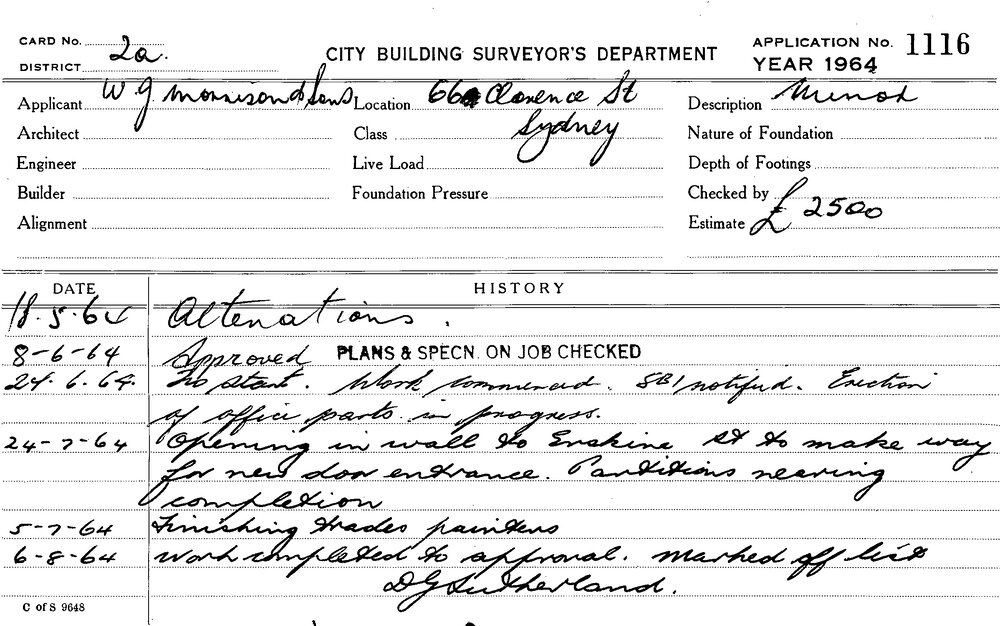 CARD No.
2a.
DISTRICT
CITY BUILDING SURVEYOR'S DEPARTMENT
APPLICATION No. 1116
YEAR 1964
Applicant W G Morrison & Sons
Location 66 Clarence St
Sydney
Description Minor
Architect
Class
Nature of Foundation
Engineer
Live Load
Depth of Footings
Builder
Foundation Pressure
Checked by
Alignment
Estimate £ 2500
DATE
HISTORY
18.5.64 Alterations.
8-6-64 Approved PLANS & SPECN. ON JOB CHECKED
24.6.64. No start. Work commenced. SBI notified. Erection
of office parts. in progress.
24-7-64 Opening in wall to Erskine St to make way
for new door entrance. Partitions nearing
completion
5-7-64 Finishing trades painters
6-8-64 Work completed to approval. Marked off list
D G Sutherland.
C of S 9648